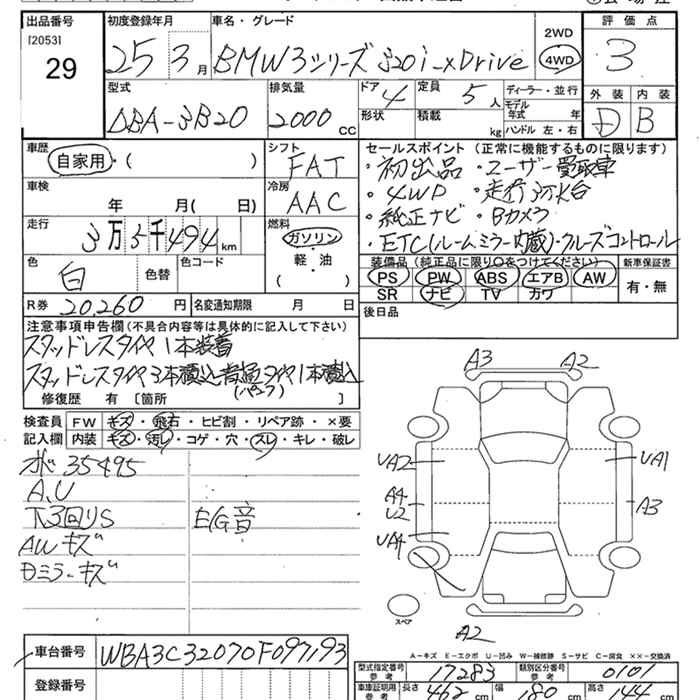 出品番号 初度登録年月 車名・グレード 2WD 評価点
[2053] 29 25 3月 BMW3シリーズ 320i_xDrive 4WD 3
型式 排気量 ドア 4 定員 5人 ディーラー・並行 外装 内装
DBA-3B20 2000cc 形状 積載 kg モデル年式 年 D B
ハンドル 左・右
車歴 シフト セールスポイント (正常に機能するものに限ります)
自家用・( ) FAT ・初出品 ・ユーザー買取車
車検 冷房 ・4WD ・走行3万km台
年 月( 日) AAC ・純正ナビ ・Bカメラ
走行 燃料 ・ETC(ルームミラー内蔵)・クルーズコントロール
3万5千494km ガソリン・
色 色替 色コード 軽・油 装備品(純正品に限り○をつけてください) 新車保証書
白 ( ) PS PW ABS エアB AW 有・無
SR ナビ TV カワ
R券 20,260円 名変通知期限 月 日 後日品
注意事項申告欄(不具合内容等は具体的に記入して下さい)
スタッドレスタイヤ1本装着
スタッドレスタイヤ3本積込 普通タイヤ1本積込
(パンク)
修復歴 有 〔箇所 〕
検査員 FW キズ・飛石・ヒビ割・リペア跡・×要
記入欄 内装 キズ・汚レ・コゲ・穴・スレ・キレ・破レ
35495
A.U
下3回りS E/G音
AWキズ
Dミラーキズ
A3 A2
UA2 UA1
A4 A3
U2
UA4
スペア
A2
A-キズ E-エクボ U-凹み W-補修跡 S-サビ C-腐食 XX-交換済
車台番号 WBA3C32070F097193
登録番号
型式指定番号 参考 17283 類別区分番号 参考 0101
車庫証明用 参考 長さ 462cm 幅 180cm 高さ 144cm